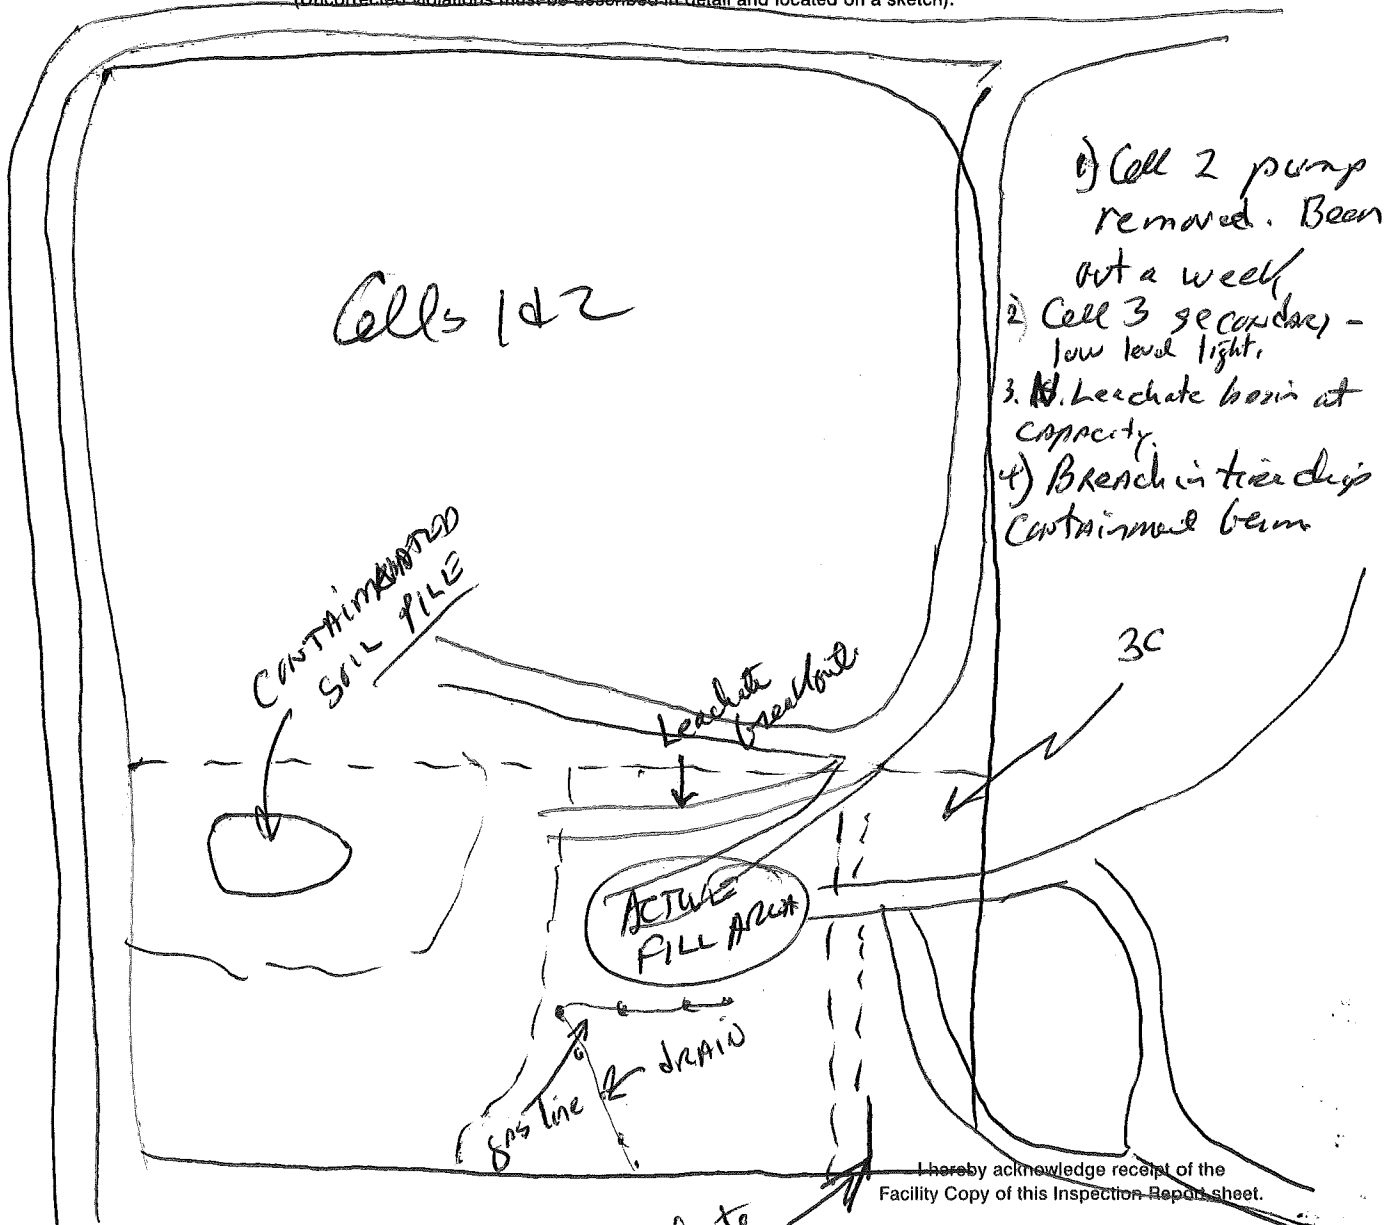 (Uncorrected violations must be described in detail and located on a sketch).
1) Cell 2 pump
removed. Been
out a week
2) Cell 3 secondary -
low level light.
3. N. Leachate basin at
capacity.
4) Breach in tire chips
containment berm
Cells 1 & 2
CONTAIMNATED
SOIL PILE
Leachate
breakout
3C
ACTIVE
FILL AREA
DRAIN
gas line
I hereby acknowledge receipt of the
Facility Copy of this Inspection Report sheet.